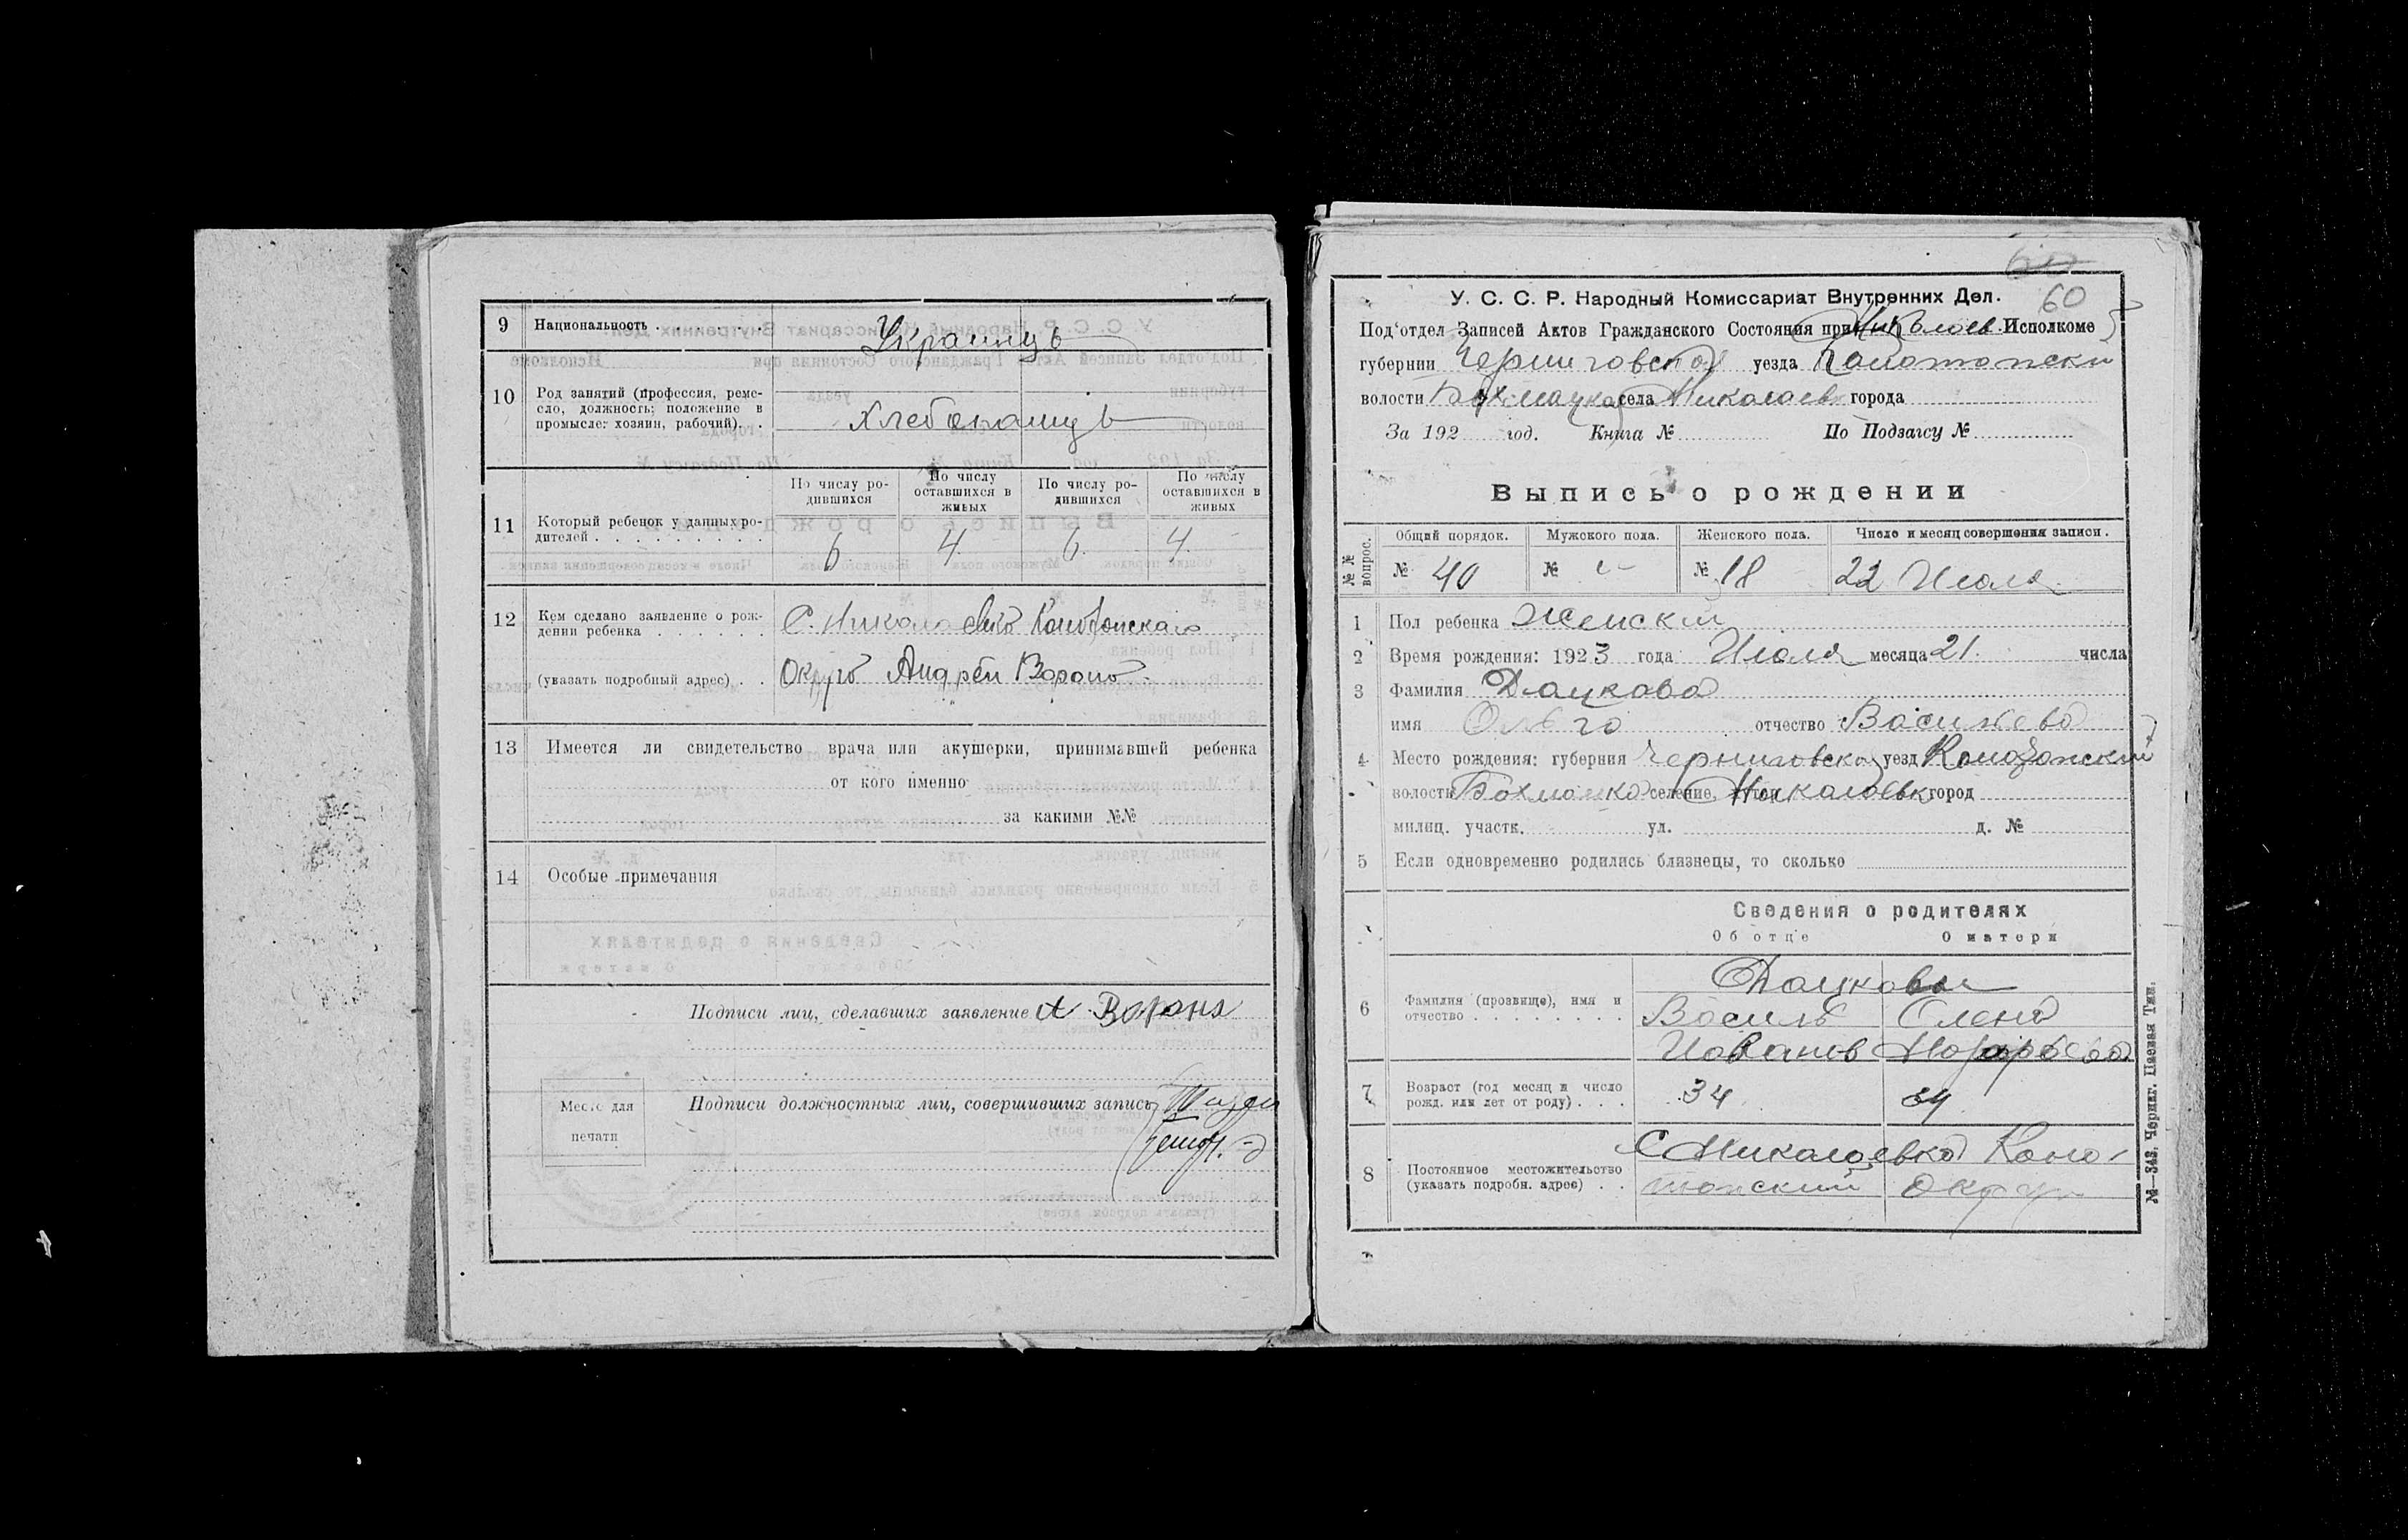 9 Национальность . . . . . . . Украинцъ
10 Род занятий (профессия, реме-
сло, должность; положение в
промысле: хозяин, рабочий). .
Хлебопашцъ
11 Который ребенок у данных ро-
дителей . . . . . . . . .
По числу ро-
дившихся
По числу
оставшихся в
живых
По числу ро-
дившихся
По числу
оставшихся в
живых
6 4 6. 4.
12 Кем сделано заявление о рож-
дении ребенка . . . . . .
С. Николаевко Конотопскаго
(указать подробный адрес) . . Округо Андрей Ворона.
13 Имеется ли свидетельство врача или акушерки, принимавшей ребенка
от кого именно
за какими №№
14 Особые примечания
Подписи лиц, сделавших заявление А Ворона
Место для
печати
Подписи должностных лиц, совершивших запись
60
У. С. С. Р. Народный Комиссариат Внутренних Дел.
Под'отдел Записей Актов Гражданского Состояния при Николаев. Исполкоме
губернии Черниговской уезда Конотопски
волости Бахмацка села Николаев города
За 192 год. Книга № По Подзагсу №
Выпись о рождении
№№ вопрос.
Общий порядок. Мужского пола. Женского пола. Число и месяц совершения записи.
№ 40 № - № 18 22 Июля
1 Пол ребенка Женский
2 Время рождения: 1923 года Июля месяца 21. числа
3 Фамилия Дацкова
имя Ольга отчество Васильева
4 Место рождения: губерния Черниговско уезд Конотопский
волость Бахмацка селение, хутор Николаевк город
милиц. участк. ул. д. №
5 Если одновременно родились близнецы, то сколько
Сведения о родителях
Об отце О матери
6 Фамилия (прозвище), имя и
отчество . . . . . . . .
Дацковы
Василь Олена
Иованов Назарьева
7 Возраст (год месяц и число
рожд. или лет от роду) . . .
34 34
8 Постоянное местожительство
(указать подробн. адрес) . .
С Николаевка Коно-
топский Округ
М—342. Черниг. Паевая Тип.